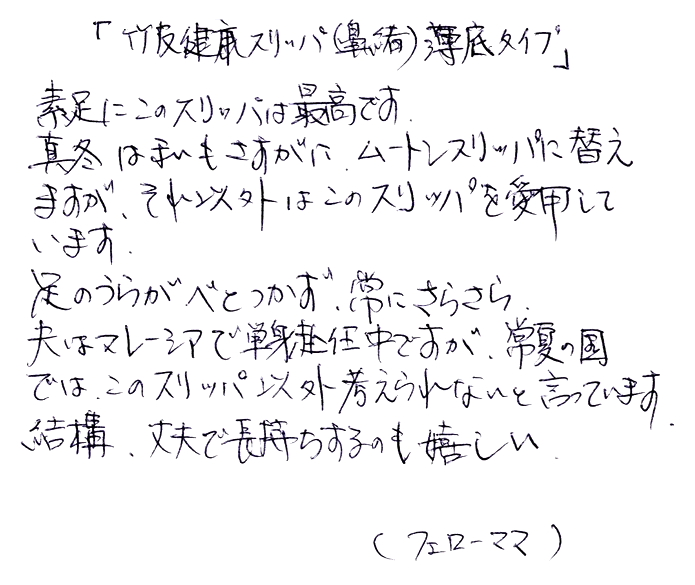 「竹皮健康スリッパ(鼻緒)薄底タイプ」
素足にこのスリッパは最高です.
真冬はまいもさすがに、ムートンスリッパに替え
ますが、それ以外はこのスリッパを愛用して
います.
足のうらがべとつかず、常にさらさら.
夫はマレーシアで単身赴任中ですが、常夏の国
では、このスリッパ以外考えられないと言っています.
結構、丈夫で長持ちするのも嬉しい.
(フェローママ)